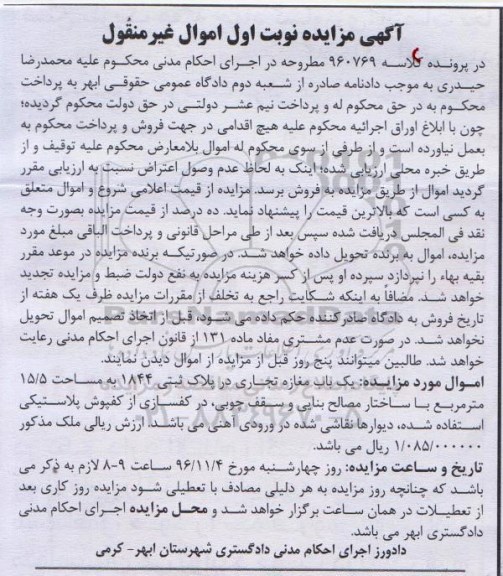 آگهی مزایده نوبت اول اموال غیرمنقُول
در پرونده کلاسه ۹۶۰۷۶۹ مطروحه در اجرای احکام مدنی محکوم علیه محمدرضا
حیدری به موجب دادنامه صادره از شعبه دوم دادگاه عمومی حقوقی ابهر به پرداخت
محکوم به در حق محکوم له و پرداخت نیم عشر دولتی در حق دولت محکوم گردیده؛
چون با ابلاغ اوراق اجرائیه محکوم علیه هیچ اقدامی در جهت فروش و پرداخت محکوم به
بعمل نیاورده است و از طرفی از سوی محکوم له اموال بلامعارض محکوم علیه توقیف و از
طریق خبره محلی ارزیابی شده؛ اینک به لحاظ عدم وصول اعتراض نسبت به ارزیابی مقرر
گردید اموال از طریق مزایده به فروش برسد. مزایده از قیمت اعلامی شروع و اموال متعلق
به کسی است که بالاترین قیمت را پیشنهاد نماید. ده درصد از قیمت مزایده بصورت وجه
نقد فی المجلس دریافت شده سپس بعد از طی مراحل قانونی و پرداخت الباقی مبلغ مورد
مزایده، اموال به برنده تحویل داده خواهد شد. در صورتیکه برنده مزایده در موعد مقرر
بقیه بهاء را نپردازد سپرده او پس از کسر هزینه مزایده به نفع دولت ضبط و مزایده تجدید
خواهد شد. مضافاً به اینکه شکایت راجع به تخلف از مقررات مزایده ظرف یک هفته از
تاریخ فروش به دادگاه صادرکننده حکم داده می شود، قبل از اتخاذ تصمیم اموال تحویل
نخواهد شد. در صورت عدم مشتری مفاد ماده ۱۳۱ از قانون اجرای احکام مدنی رعایت
خواهد شد. طالبین میتوانند پنج روز قبل از مزایده از اموال دیدن نمایند.
اموال مورد مزایده: یک باب مغازه تجاری در پلاک ثبتی ۱۸۴۴ به مساحت ۱۵/۵
مترمربع با ساختار مصالح بنایی و سقف چوبی در کفسازی از کفپوش پلاستیکی
استفاده شده، دیوارها نقاشی شده در ورودی آهنی می باشد. ارزش ریالی ملک مذکور
۱/۰۸۵/۰۰۰۰۰۰ ریال می باشد.
تاریخ و ساعت مزایده: روز چهارشنبه مورخ ۹۶/۱۱/۴ ساعت ۹-۸ لازم به ذکر می
باشد که چنانچه روز مزایده به هر دلیلی مصادف با تعطیلی شود مزایده روز کاری بعد
از تعطیلات در همان ساعت برگزار خواهد شد و محل مزایده اجرای احکام مدنی
دادگستری ابهر می باشد.
دادورز اجرای احکام مدنی دادگستری شهرستان ابهر- کرمی